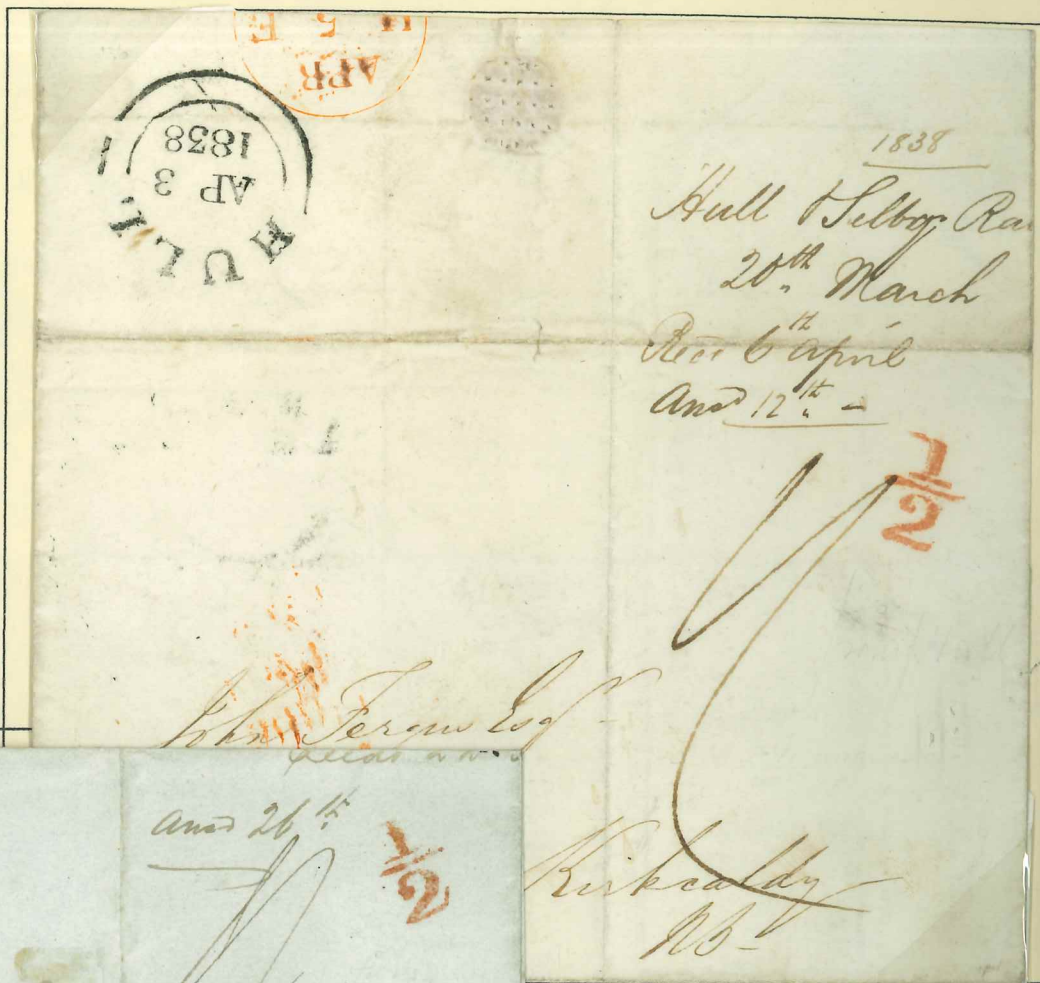 H 5 E
APR
HULL
AP 3
1838
1838
Hull & Selby Rai
20th March
Recd 6th april
Ansd 12th -
1/2
John Fergus Esqr
Kirkcaldy
NB -
ansd 26th
1/2